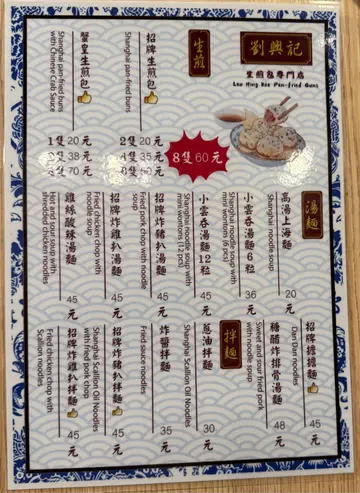 劉興記
生煎包專門店
Lee Hing Kee Pan-fried Buns
生煎
招牌生煎包
Shanghai pan-fried buns
2隻20元
4隻35元
8隻60元
蟹皇生煎包
Shanghai pan-fried buns
with Chinese Crab Sauce
1隻20元
2隻38元
湯麵
高湯上海麵
Shanghai noodle soup
20元
小雲吞湯麵6粒
Shanghai noodle soup with
mini wontons (6 pcs)
36元
小雲吞湯麵12粒
Shanghai noodle soup with
mini wontons (12 pcs)
45元
招牌炸豬扒湯麵
Fried pork chop with noodle
soup
45元
招牌炸雞扒湯麵
Fried chicken chop with
noodle soup
45元
雞絲酸辣湯麵
Hot and sour soup with
shredded chicken noodles
45元
招牌擔擔麵
Dan Dan noodles
45元
糖醋炸排骨湯麵
Sweet and sour fried pork
with noodle soup
48元
拌麵
蔥油拌麵
Shanghai Scallion Oil Noodles
30元
炸醬拌麵
Fried sauce noodles
35元
招牌炸豬扒拌麵
Shanghai Scallion Oil Noodles
with fried pork chop
45元
招牌炸雞扒拌麵
Fried chicken chop with
Scallion noodles
45元